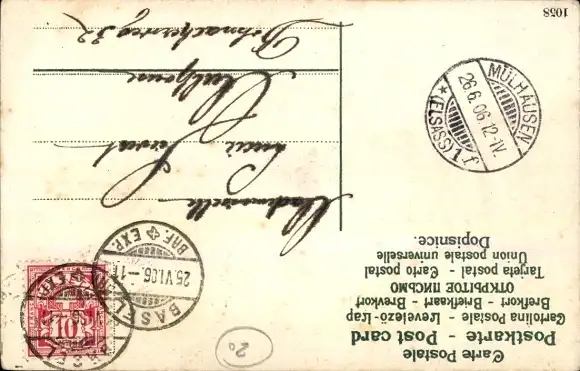 Carte Postale
Postkarte - Post card
Cartolina Postale - Levelező-Lap
Brefkort - Briefkaart - Brevkort
ОТКРЫТОЕ ПИСЬМО
Tarjeta postal - Carto postal
Union postale universelle
Dopisnice.
BASEL
25.VI.06.-11
BRF. EXP.
10
20
Mademoiselle
Lucie
Mulhouse
32
MÜLHAUSEN
26.6.06.12-1V.
* (ELSASS) 1 f
1058